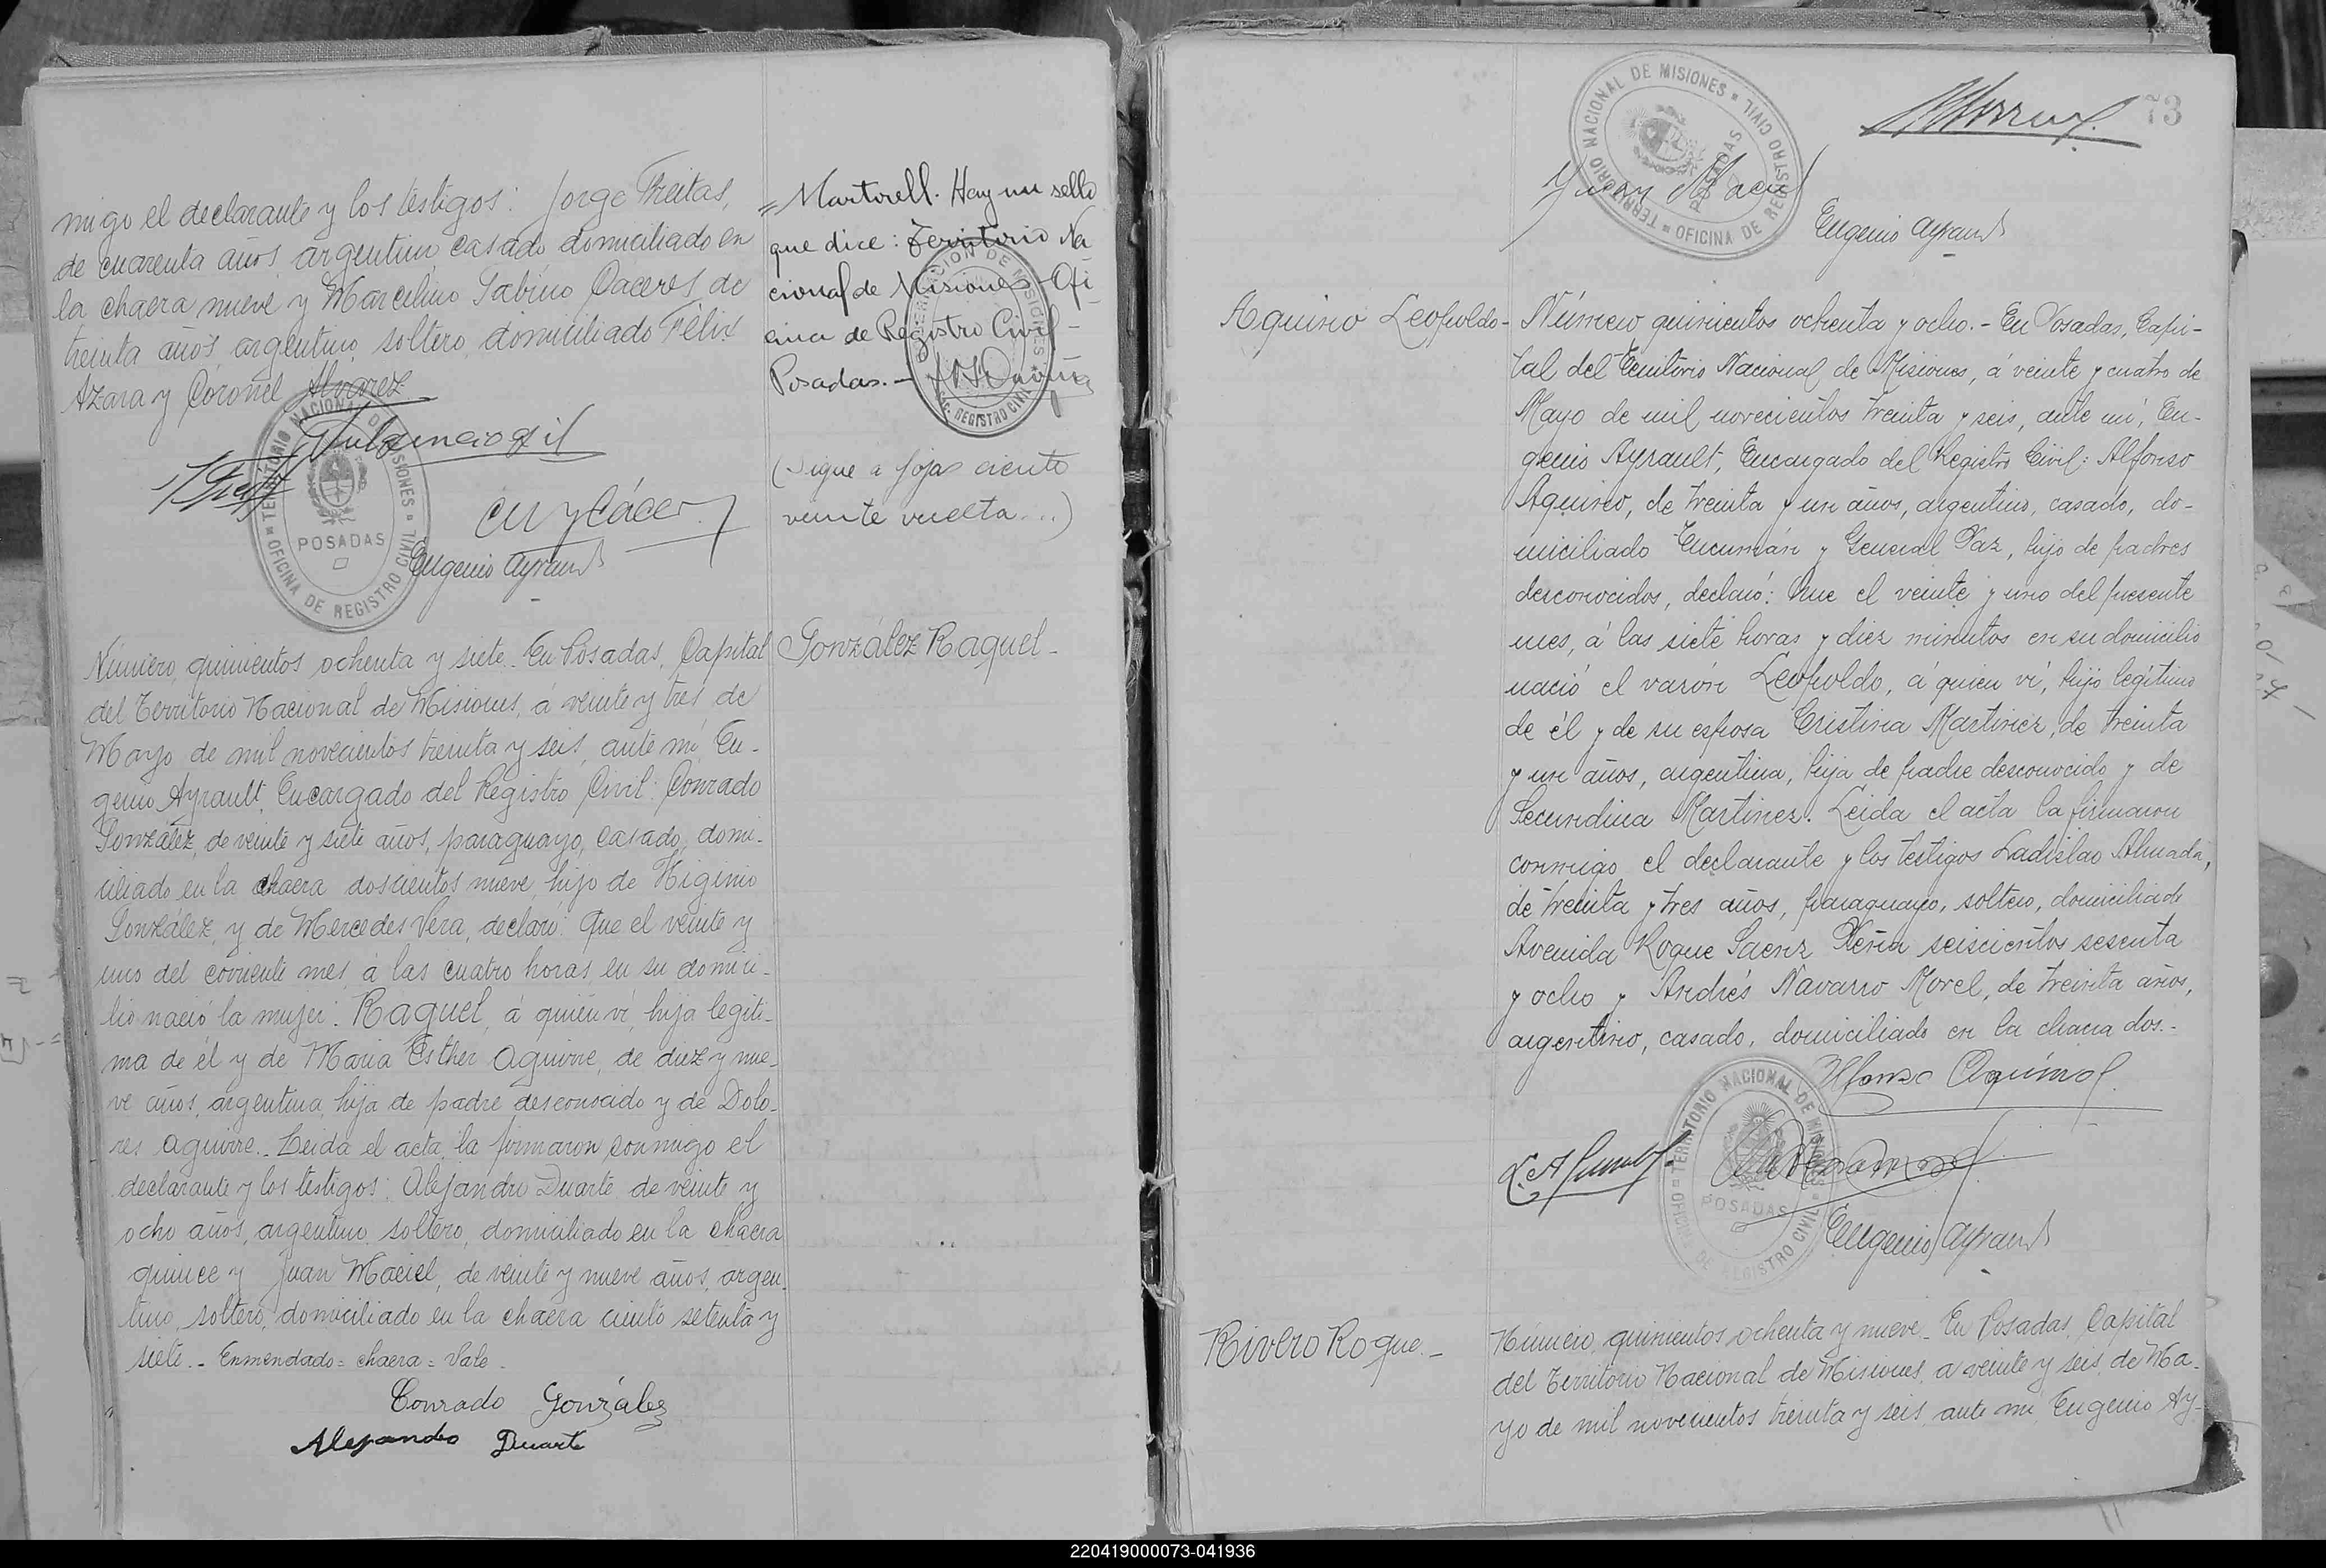 migo el declarante y los testigos: Jorge Freitas,
de cuarenta años, argentino, casado, domiciliado en
la chacra nueve y Marcelino Sabino Caceres de
treinta años, argentino, soltero, domiciliado Félix
Azara y Coronel Alvarez
Fulgencio Gil
Eugenio Ayrault
TERRITORIO NACIONAL DE MISIONES
POSADAS
OFICINA DE REGISTRO CIVIL
"Martorell. Hay un sello
que dice: Territorio Na
cional de Misiones - Ofi
cina de Registro Civil -
Posadas. -
(Sigue a fojas ciento
veinte vuelta...)
Número quinientos ochenta y siete. En Posadas, Capital
del Territorio Nacional de Misiones, á veinte y tres de
Mayo de mil novecientos treinta y seis, ante mí, Eu-
genio Ayrault, Encargado del Registro Civil: Conrado
González, de veinte y siete años, paraguayo, casado, domi-
ciliado en la chacra doscientos nueve, hijo de Higinio
González, y de Mercedes Vera, declaró: Que el veinte y
uno del corriente mes, á las cuatro horas, en su domici-
lio nació la mujer: Raquel, á quien ví, hija legíti-
ma de él y de Maria Esther Aguirre, de diez y nue-
ve años, argentina, hija de padre desconocido y de Dolo-
res Aguirre. Leida el acta, la firmaron conmigo el
declarante y los testigos: Alejandro Duarte, de veinte y
ocho años, argentino, soltero, domiciliado en la chacra
quince y Juan Maciel, de veinte y nueve años, argen-
tino, soltero, domiciliado en la chacra ciento setenta y
siete. - Enmendado = chacra = Vale.
González Raquel -
Conrado González
Alejandro Duarte
73
TERRITORIO NACIONAL DE MISIONES
OFICINA DE REGISTRO CIVIL
POSADAS
Juan Maciel
Eugenio Ayrault
Aquino Leopoldo -
Número quinientos ochenta y ocho. - En Posadas, Capi-
tal del Territorio Nacional de Misiones, á veinte y cuatro de
Mayo de mil novecientos treinta y seis, ante mí, Eu-
genio Ayrault, Encargado del Registro Civil: Alfonso
Aquino, de treinta y un años, argentino, casado, do-
miciliado Tucumán y General Paz, hijo de padres
desconocidos, declaró: Que el veinte y uno del presente
mes, á las siete horas y diez minutos en su domicilio
nació el varón Leopoldo, á quien ví, hijo legítimo
de él y de su esposa Cristina Martinez, de treinta
y un años, argentina, hija de padre desconocido y de
Secundina Martinez. Leida el acta la firmaron
conmigo el declarante y los testigos Ladislao Almada,
de treinta y tres años, paraguayo, soltero, domiciliado
Avenida Roque Saenz Peña seiscientos sesenta
y ocho y Andrés Navarro Morel, de treinta años,
argentino, casado, domiciliado en la chacra dos. -
Alfonso Aquino
TERRITORIO NACIONAL DE MISIONES
POSADAS
OFICINA DE REGISTRO CIVIL
Eugenio Ayrault
Rivero Roque. -
Número quinientos ochenta y nueve. En Posadas, Capital
del Territorio Nacional de Misiones, a veinte y seis de Ma-
yo de mil novecientos treinta y seis, ante mí, Eugenio Ay-
220419000073-041936